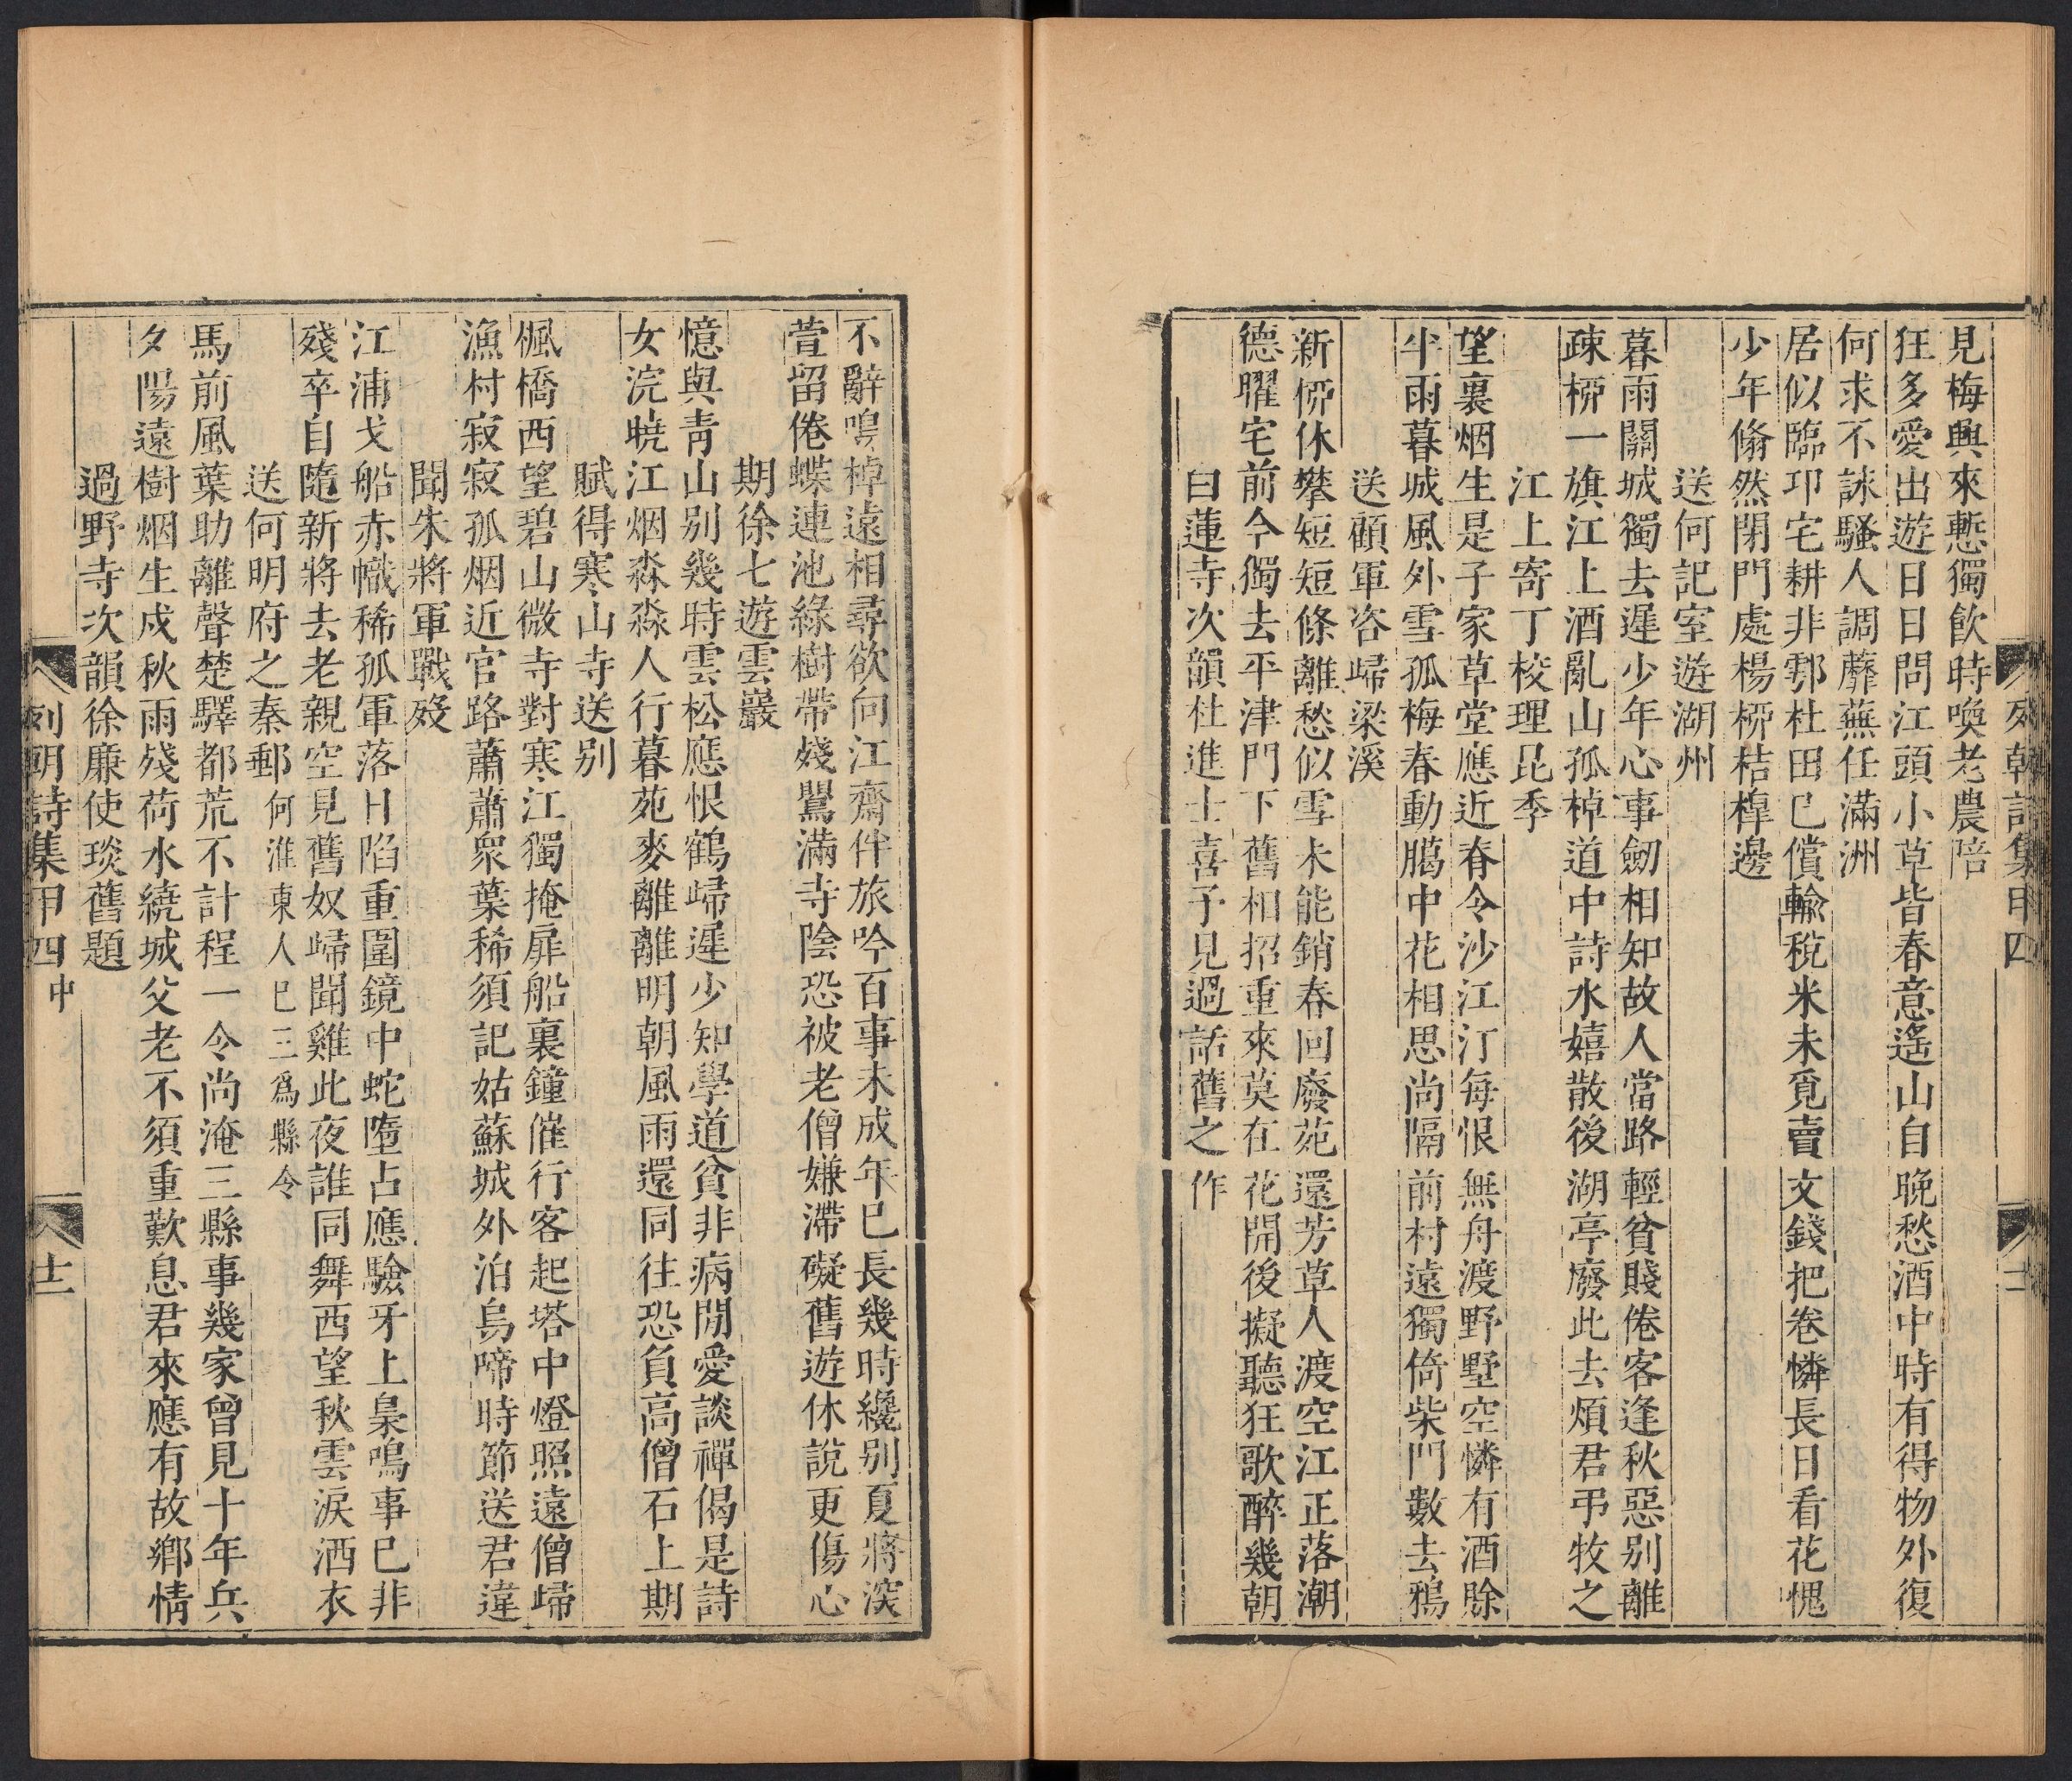 見梅興來慙獨飲時喚老農陪
狂多愛出遊日日問江頭小草皆春意遙山自晚愁酒中時有得物外復
何求不誄騷人調蘼蕪任滿洲
居似臨卭宅耕非鄠杜田已償輸稅米未覓賣文錢把卷憐長日看花愧
少年翛然閉門處楊桺桔橰邊
送何記室遊湖州
暮雨關城獨去遲少年心事劒相知故人當路輕貧賤倦客逢秋惡別離
疎桺一旗江上酒亂山孤棹道中詩水嬉散後湖亭廢此去煩君弔牧之
江上寄丁校理昆季
望裏烟生是子家草堂應近脊令沙江汀每恨無舟渡野墅空憐有酒賒
半雨暮城風外雪孤梅春動臈中花相思尚隔前村遠獨倚柴門數去鴉
送顧軍咨歸梁溪
新桺休攀短短條離愁似雪未能銷春回廢苑還芳草人渡空江正落潮
德曜宅前今獨去平津門下舊相招重來莫在花開後擬聽狂歌醉幾朝
白蓮寺次韻杜進士喜予見過話舊之作
列朝詩集甲四
不辭鳴棹遠相尋欲向江齋伴旅吟百事未成年已長幾時纔别夏將深
萱留倦蝶連池綠樹帶殘鶯滿寺陰恐被老僧嫌滯礙舊遊休說更傷心
期徐七遊雲巖
憶與靑山别幾時雲松應恨鶴歸遲少知學道貧非病閒愛談禪偈是詩
女浣曉江烟淼淼人行暮苑麥離離明朝風雨還同往恐負高僧石上期
賦得寒山寺送别
楓橋西望碧山微寺對寒江獨掩扉船裏鐘催行客起塔中燈照遠僧歸
漁村寂寂孤烟近官路蕭蕭衆葉稀須記姑蘇城外泊烏啼時節送君違
聞朱將軍戰歿
江浦戈船赤幟稀孤軍落日陷重圍鏡中蛇墮占應驗牙上梟鳴事已非
殘卒自隨新將去老親空見舊奴歸聞雞此夜誰同舞西望秋雲淚洒衣
送何明府之秦郵 何淮東人已三爲縣令
馬前風葉助離聲楚驛都荒不計程一令尚淹三縣事幾家曾見十年兵
夕陽遠樹烟生戍秋雨殘荷水繞城父老不須重歎息君來應有故鄉情
過野寺次韻徐廉使琰舊題
列朝詩集甲四中
十二